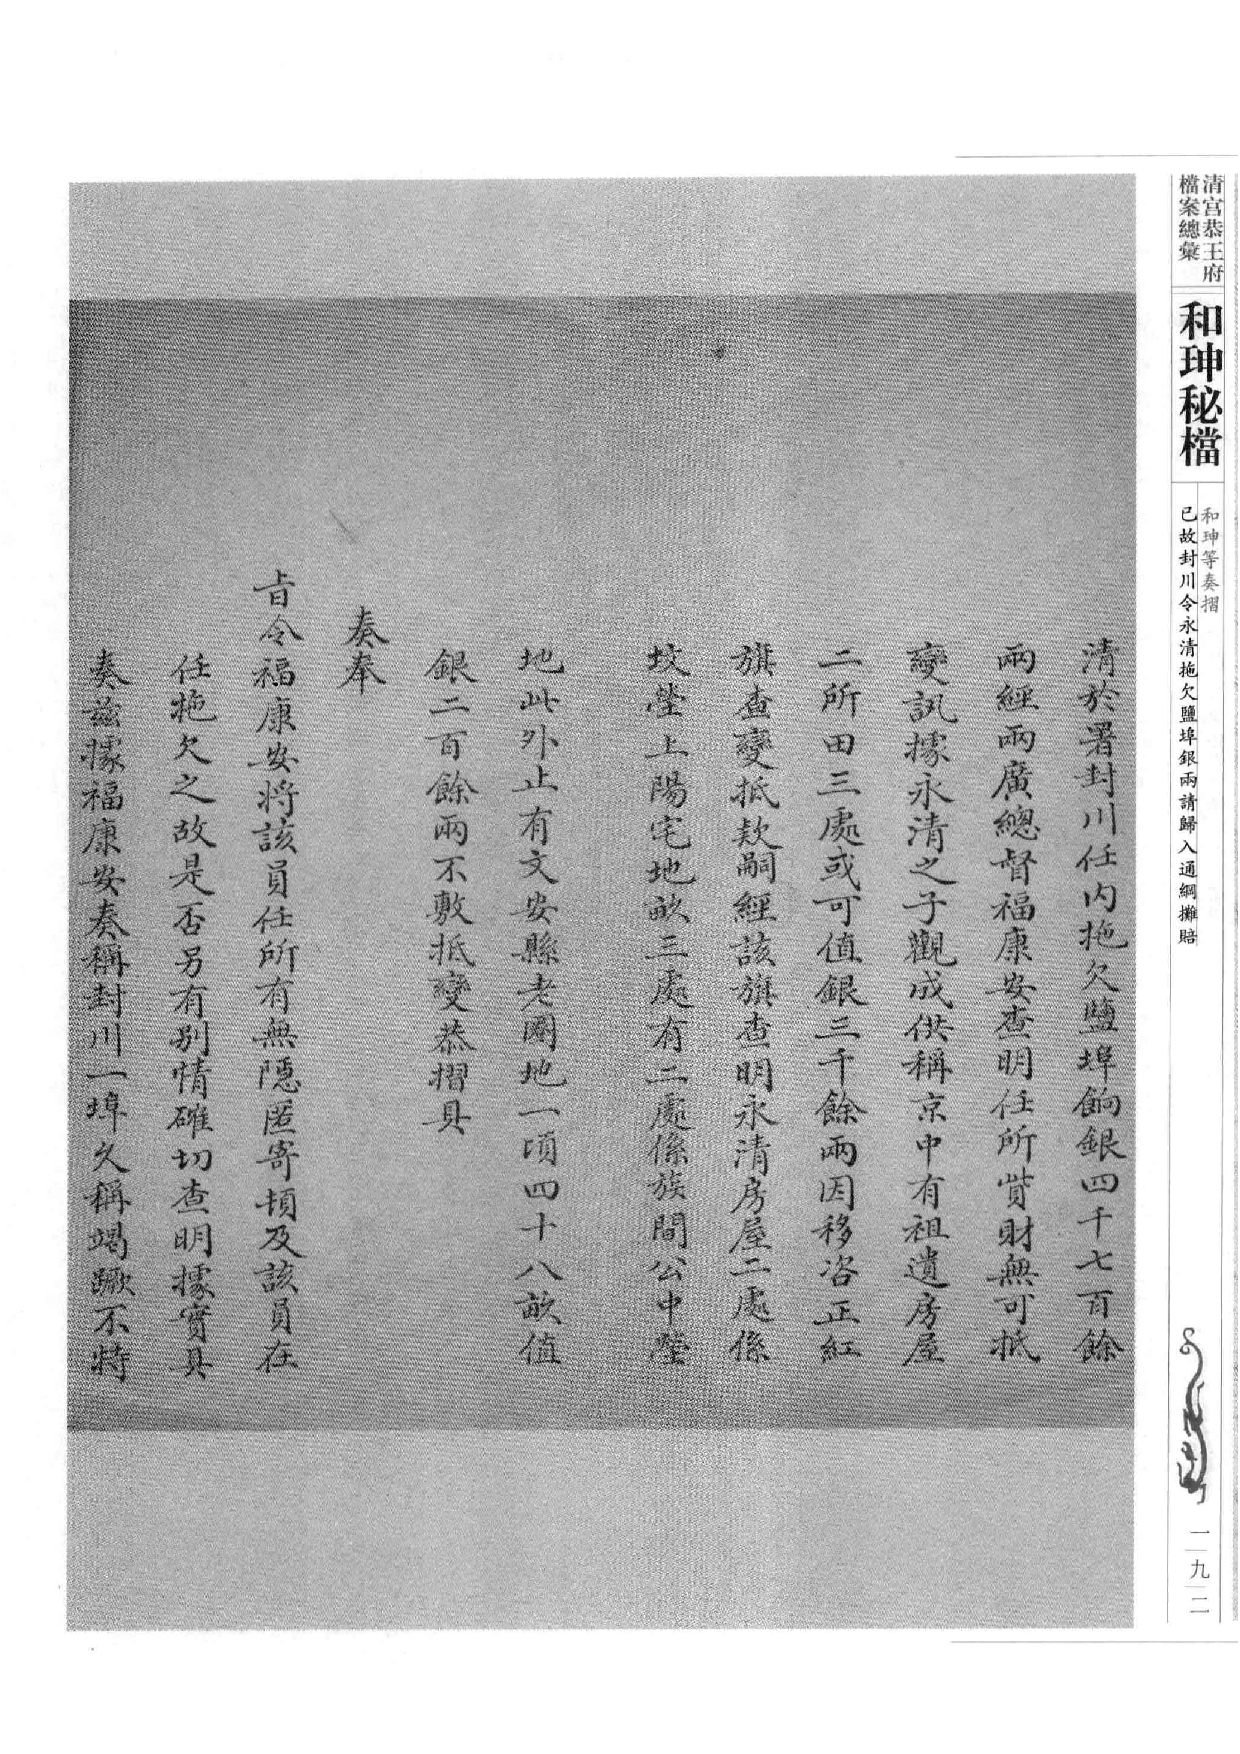 清宮恭王府
檔案總彙
和珅秘檔
和珅等奏摺
已故封川令永清拖欠鹽埠銀兩請歸入通綱攤賠
一九二
清於署封川任内拖欠鹽埠餉銀四千七百餘
兩經兩廣總督福康安查明任所貲財無可抵
變訊據永清之子觀成供稱京中有祖遺房屋
二所田三處或可值銀三千餘兩因移咨正紅
旗查變抵欵嗣經該旗查明永清房屋二處係
坟塋上陽宅地畝三處有二處係族間公中塋
地此外止有文安縣老圈地一頃四十八畝值
銀二百餘兩不敷抵變恭摺具
奏奉
旨令福康安将該員任所有無隱匿寄頓及該員在
任拖欠之故是否另有别情確切查明據實具
奏兹據福康安奏稱封川一埠久稱竭蹶不特